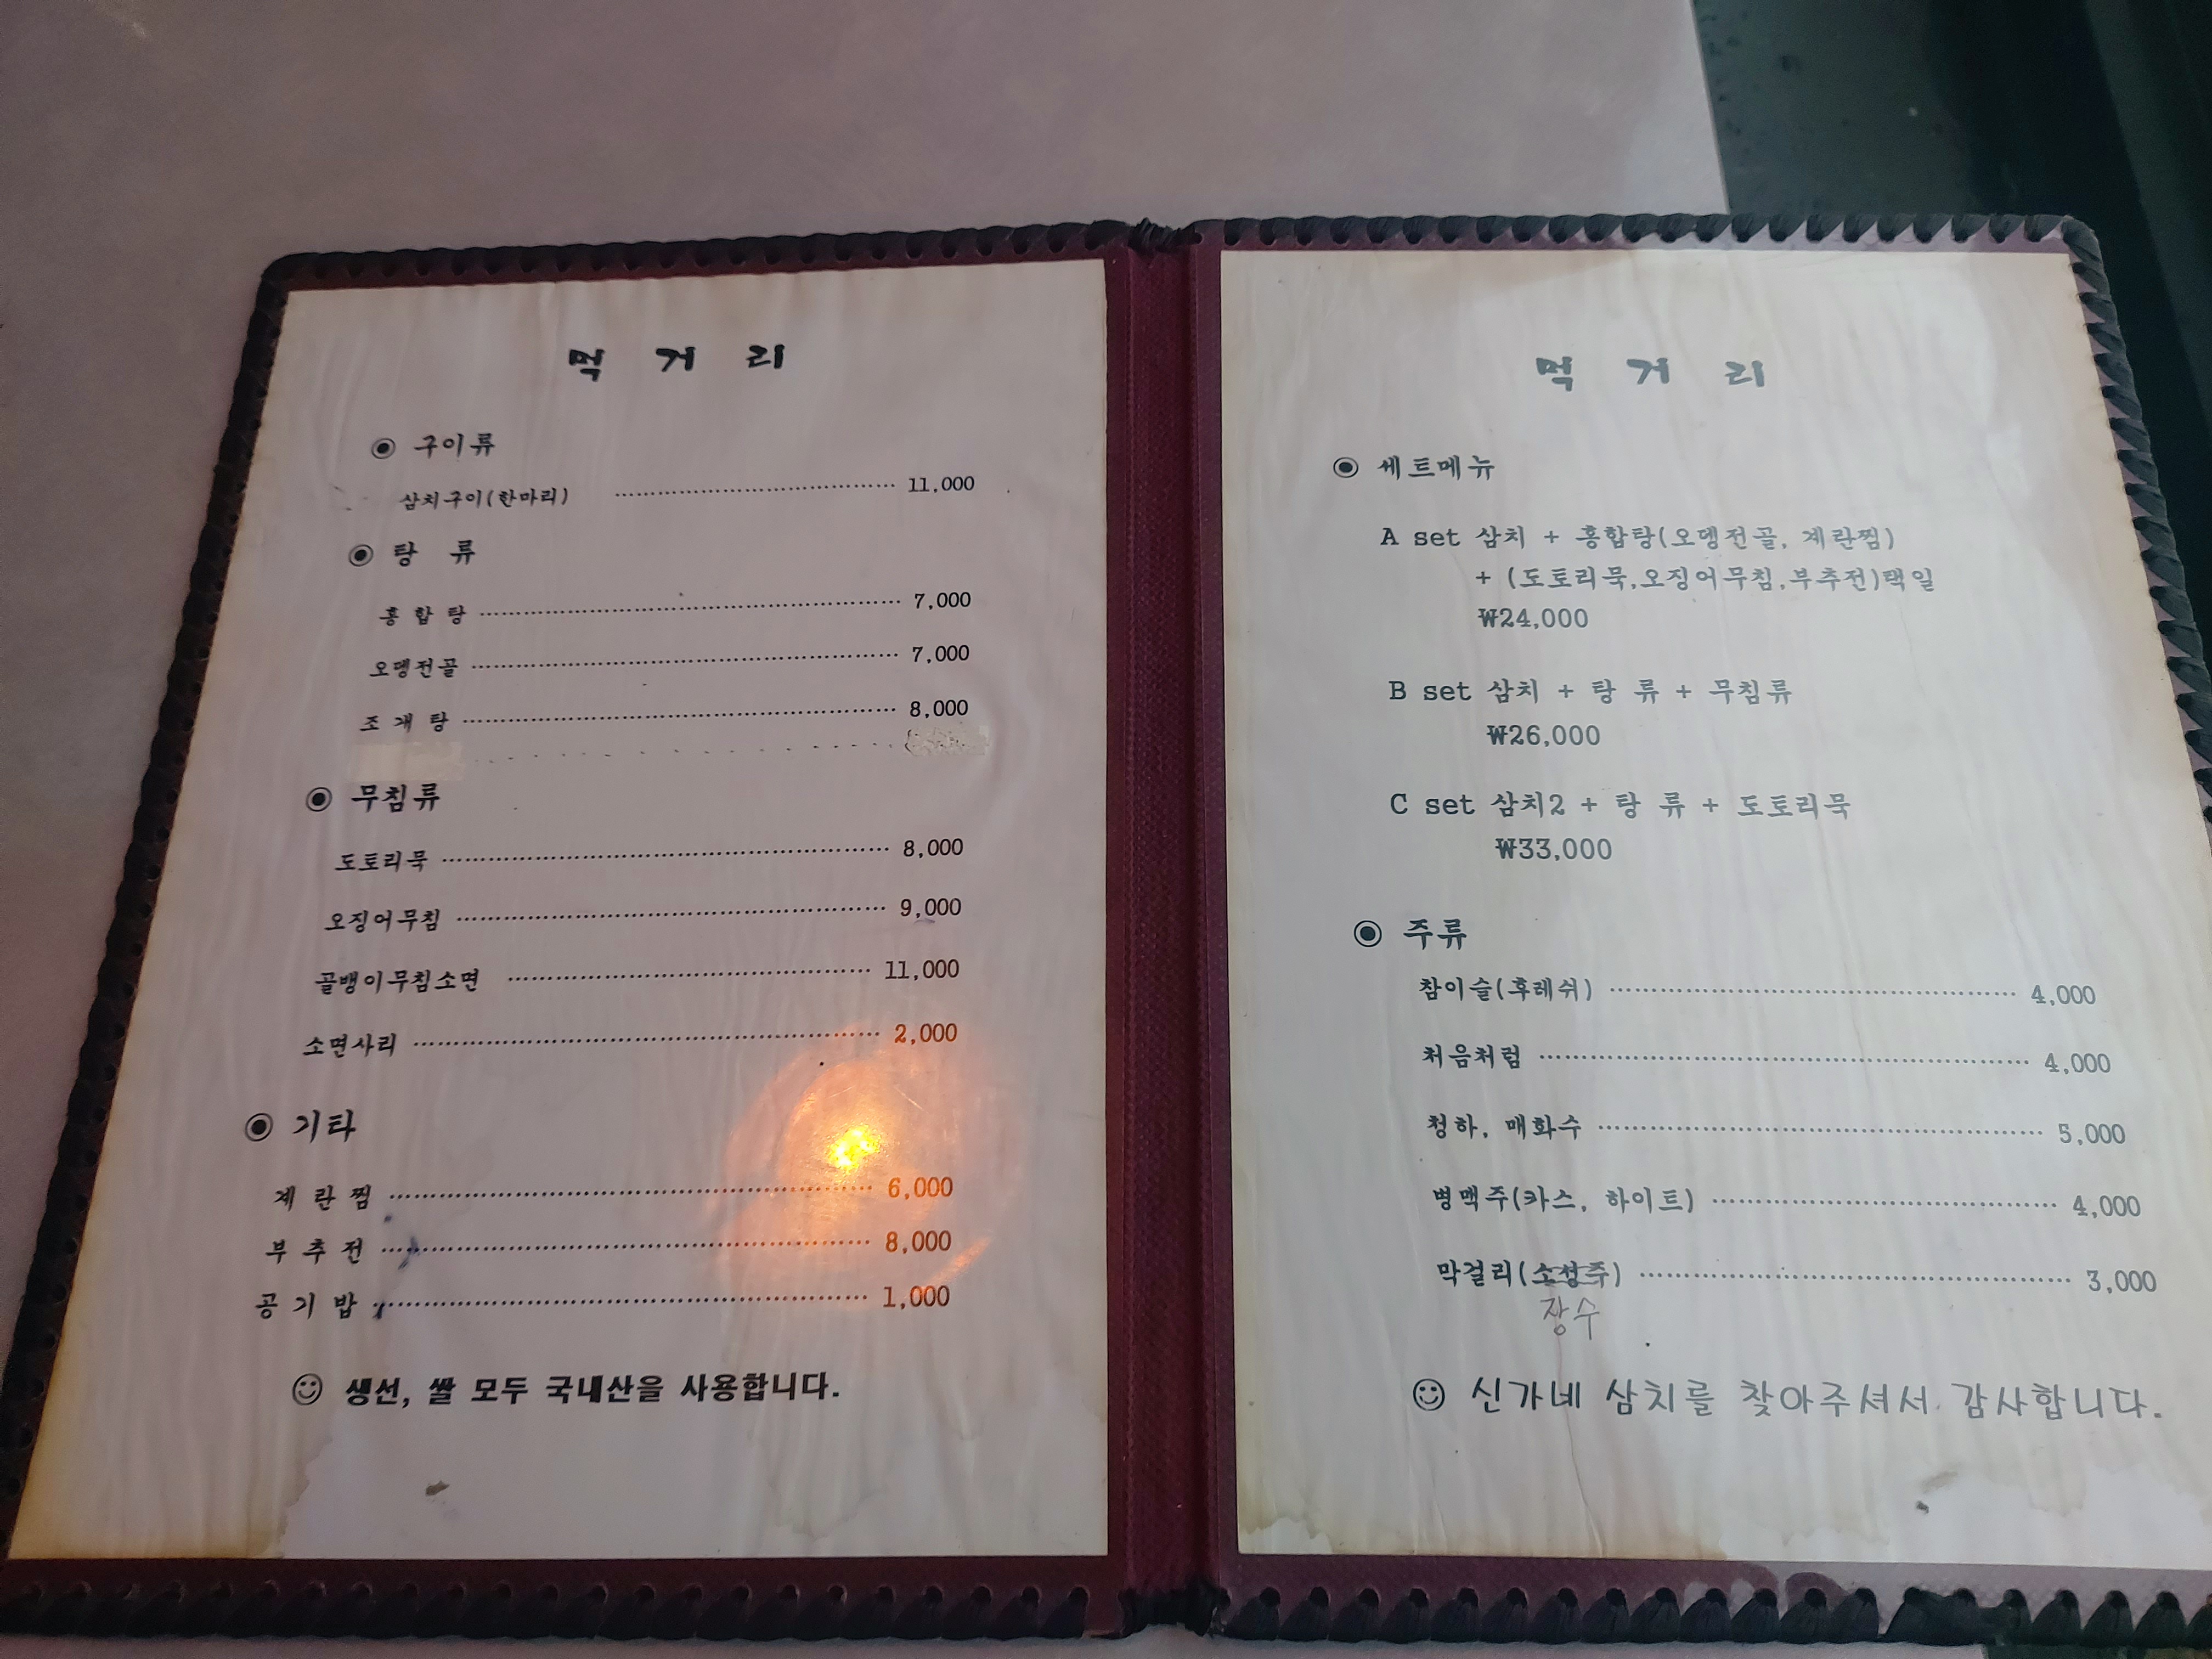 먹 거 리
◉ 구이류
삼치구이(한마리) ........ 11,000
◉ 탕 류
홍 합 탕 ........ 7,000
오뎅전골 ........ 7,000
조 개 탕 ........ 8,000
◉ 무침류
도토리묵 ........ 8,000
오징어무침 ........ 9,000
골뱅이무침소면 ........ 11,000
소면사리 ........ 2,000
◉ 기타
계 란 찜 ........ 6,000
부 추 전 ........ 8,000
공 기 밥 ........ 1,000
☺ 생선, 쌀 모두 국내산을 사용합니다.
먹 거 리
◉ 세트메뉴
A set 삼치 + 홍합탕(오뎅전골, 계란찜)
+ (도토리묵,오징어무침,부추전)택일
₩24,000
B set 삼치 + 탕 류 + 무침류
₩26,000
C set 삼치2 + 탕 류 + 도토리묵
₩33,000
◉ 주류
참이슬(후레쉬) ........ 4,000
처음처럼 ........ 4,000
청하, 매화수 ........ 5,000
병맥주(카스, 하이트) ........ 4,000
막걸리(소성주) ........ 3,000
장수
☺ 신가네 삼치를 찾아주셔서 감사합니다.